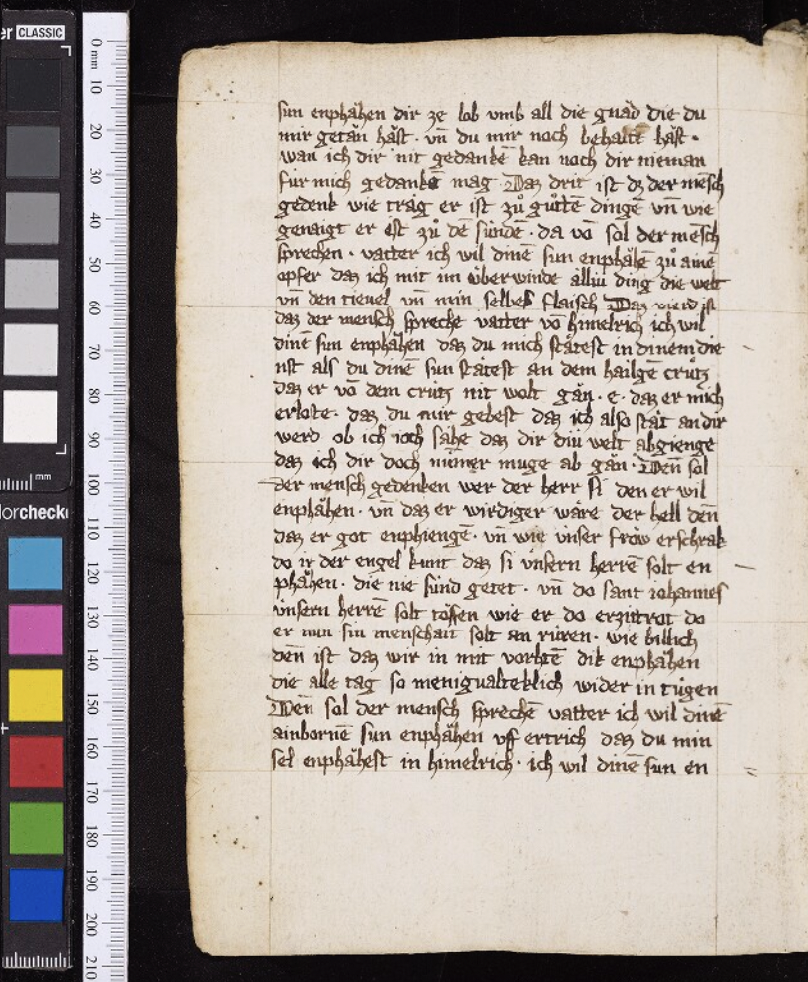 er CLASSIC
0 mm 10 20 30 40 50 60 70 80 90 100 110 120 130 140 150 160 170 180 190 200 210
mm
lorcheck
sun enphahen dir ze lob vmb all die gnad die du
mir getan håst · vn̄ du mir noch behalte håst ·
wan ich dir nit gedankē kan noch dir nieman
fúr mich gedankē mag · Daz drit ist dz der mēsch
gedenk wie tråg er ist zů gůtē dingē vn̄ wie
genaigt er ist zů dē súndē · da vō sol der mēsch
sprechen · vatter ich wil dinē sun enphahē zů ainē
opfer daz ich mit im úberwinde alliu ding die welt
vn̄ den tieuel vn̄ min selbes flaisch Daz vierd ist
daz der mensch spreche vatter vō himelrich ich wil
dinē sun enphåhen daz du mich ståtest in dinem die
nst als du dinē sun ståtest an dem hailgē crútz
daz er vō dem crútz nit wolt gån · e · daz er mich
erloste · daz du mir gebest daz ich also ståt an dir
werd ob ich ioch såhe daz dir diu welt abgienge
daz ich dir doch niemer muge ab gån · Den̄ sol
der mensch gedenken wer der herr si den er wil
enphåhen · vn̄ daz er wirdiger wåre der hell den̄
daz er got enphiengē · vn̄ wie vnser frow erschrak
do ir der engel kunt daz si vnsern herrē solt en
phåhen · die nie súnd getet · vn̄ do sant iohannes
vnsern herrē solt toffen wie er do erzittrot do
er nun sin menschait solt an růren · wie billich
den̄ ist daz wir in mit vorhtē dik enphåhen
die alle tag so menigualteklich wider in túgen
Den̄ sol der mensch sprechē vatter ich wil dinē
ainbornē sun enphåhen vff ertrich daz du min
sel enphåhest in himelrich · ich wil dinē sun en